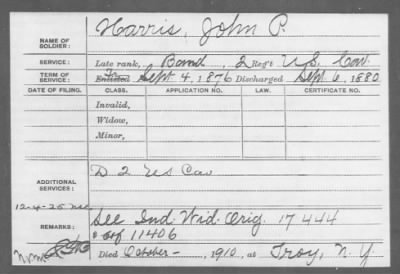 NAME OF SOLDIER: Harris, John P.
SERVICE: Late rank, Band, 2 Reg't U.S. Cav.
TERM OF SERVICE: Enlisted Tr. Sept 4, 1876 Discharged Sept. 6, 1880
DATE OF FILING. CLASS. APPLICATION NO. LAW. CERTIFICATE NO.
Invalid,
Widow,
Minor,
ADDITIONAL SERVICES: D 2 US Cav
12-4-25
REMARKS: See Ind. Wid. Orig. 17444
ctf 11406
Died October - , 1910, at Troy, N.Y.